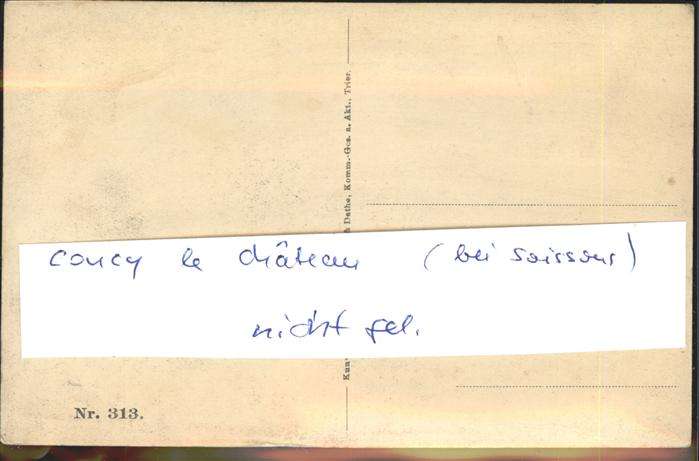 coucy le château (bei soissons)
nicht gel.
Kun
h Dathe, Komm.-Ges. a. Akt., Trier.
Nr. 313.